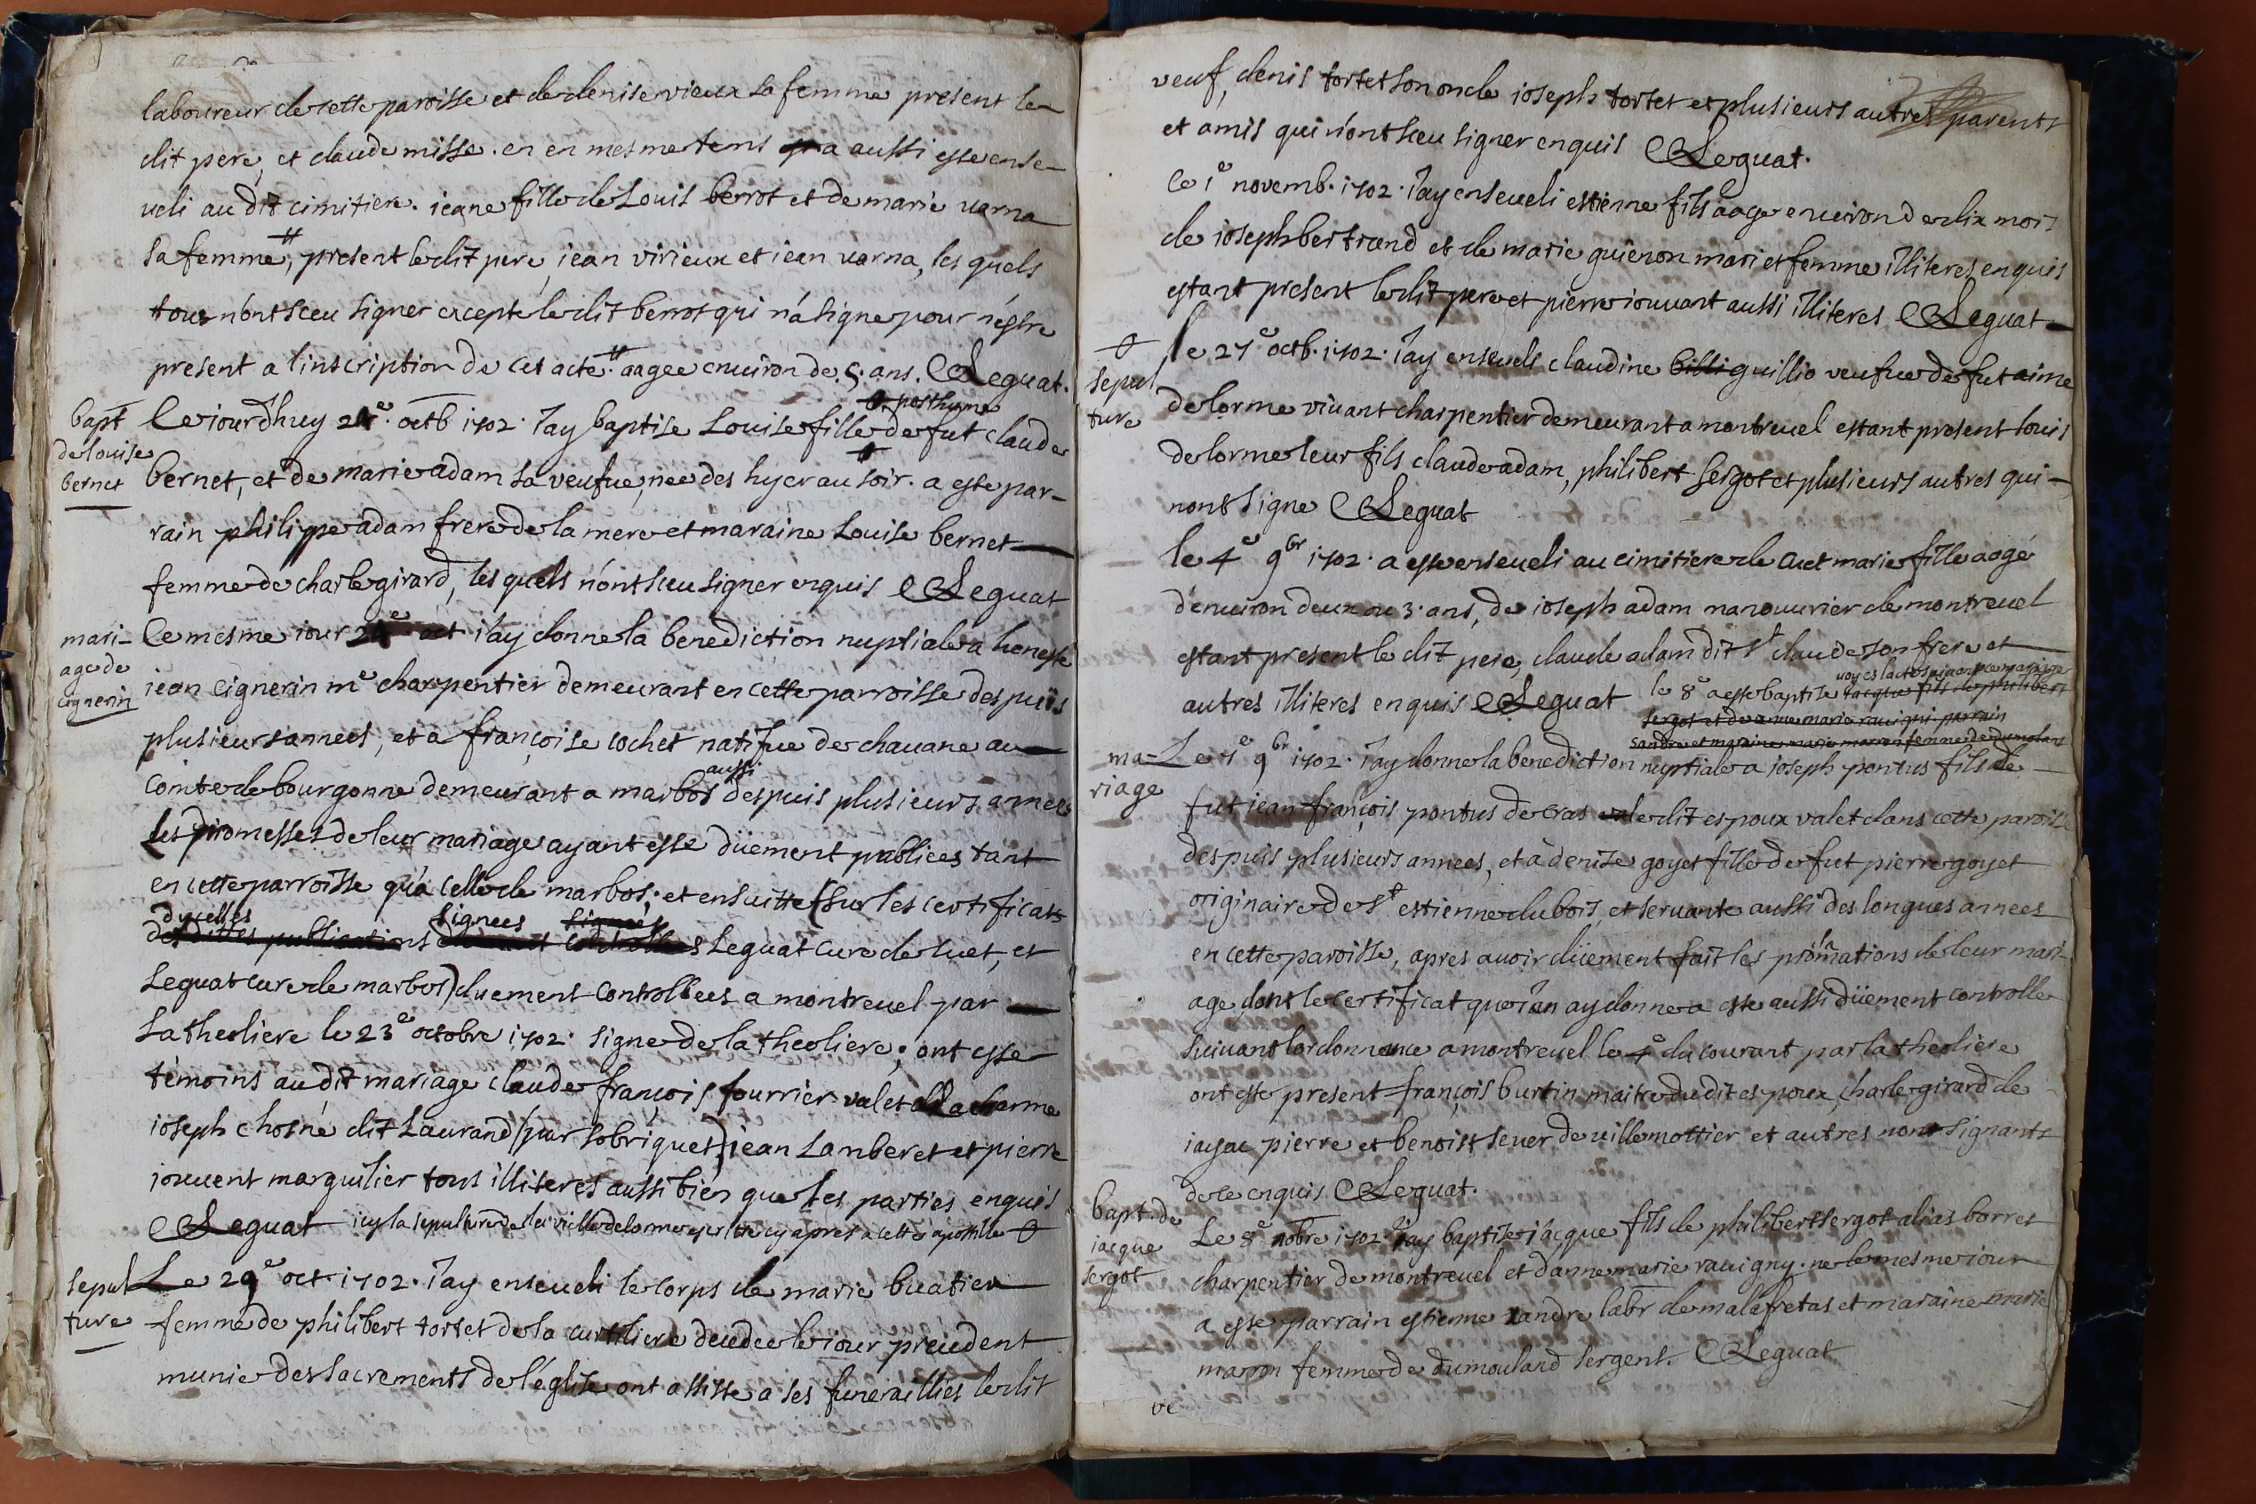 laboureur de cette paroisse et de denise vieux sa femme present le
dit pere, et claude misse. en en mesme tems a aussi esse ense-
veli au dit cimitiere. ieane fille de Louis berrot et de marie varna
sa femme, # present ledit pere, iean virieux et iean varna, les quels
tous n'ont sceu signer excepté le dit berrot qui n'a signe pour n'estre
present a l'inscription de cet acte. # aagee environ de .5. ans. Leguat.
bapt
de louise
bernet
Ce iourdhuy 24e. octb 1702. I'ay baptise Louise fille de fut claude
posthume
bernet, et de marie adam sa veufve, née des hyer au soir. a este par-
rain philippe adam frere de la mere et maraine Louise bernet
femme de charle girard, les quels n'ont sceu signer enquis Leguat
mari-
age de
cignerin
Ce mesme iour 24e oct i'ay donne la benediction nuptiale a honeste
iean cignerin me charpentier demeurant en cette parroisse despuis
plusieurs années, et a françoise cochet natifve de chavane au
comte de bourgonne demeurant a marbos aussi despuis plusieurs annees
les promesses de leur mariage ayant esse düement publiees tant
en cette parroisse qu'a celle de marbos; et ensuitte (sur les certificats
dycelles signees signés
desdittes publications Leguat cure de cuet, et
Leguat cure de marbos) duement controllees a montrevel par
La theoliere le 23e octobre 1702. signe de la theoliere; ont esse
témoins au dit mariage claude françois fourrier valet
ioseph chosné dit Laurand (par sobriquet) iean Lamberet et pierre
iouvent marguilier tous illiteres aussi bien que les parties enquis
Leguat icy la sepulture de la vielle delorme cy apres a cette apostille
sepul
ture
Le 29e oct. 1702. I'ay enseveli le corps de marie buatier
femme de philibert tortet de la curtiliere decedee le iour precedent
munie des sacrements de l'église ont assiste a ses funeraillies ledit
veuf, denis tortet son oncle ioseph tortet et plusieurs autres parents
et amis qui n'ont sceu signer enquis Leguat.
Ce 1e novemb. 1702. I'ay enseveli estienne fils aage environ de dix mois
de ioseph bertrand et de marie guienon mari et femme illiteres enquis
estant present ledit pere et pierre iouvant aussi illiteres Leguat
sepul
ture
le 27e octb. 1702. I'ay enseveli claudine billi guillio veufve de fut aime
delorme vivant charpentier demeurant a montrevel estant present louis
delorme leur fils claude adam, philibert sergot et plusieurs autres qui
nont signe Leguat
le 4e 9br 1702. a esse enseveli au cimitiere de cuet marie fille aagé
d'environ deux ou 3. ans, de ioseph adam manouvrier de montrevel
estant present le dit pere, claude adam dit st claude son frere et
autres illiteres enquis Leguat le 8e a esse baptise iacque fils de philibert
sergot et de anne marie ravigni parrain
sandre et maraine marie marron femme de dumolard
ma-
riage
Le 7e 9br 1702. I'ay donne la benediction nuptiale a ioseph pontus fils de
fut iean françois pontus de cras ledit espoux valet dans cette paroisse
despuis plusieurs annees, et a denise goyet fille de fut pierre goyet
originaire de st estienne du bois, et servante aussi des longues annees
en cette paroisse, apres avoir düement fait les proclamations de leur mari-
age, dont le certificat que i'en ay donne a esse aussi düement controlle
suivant lordonnance a montrevel le 4e du courant par la theoliere
ont este present françois burtin maitre dudit espoux, charle girard de
iayac pierre et benoist sever de villemottier et autres nont signants
de ce enquis Leguat.
bapt. de
iacque
sergot
Le 8e nobre 1702. I'ay baptise iacque fils de philibert sergot alias borret
charpentier de montrevel et danne marie ravigny. ne le mesme iour
a esse parrain estienne xandre labr de malafretas et maraine marie
maron femme de dumoulard sergent. Leguat
ve